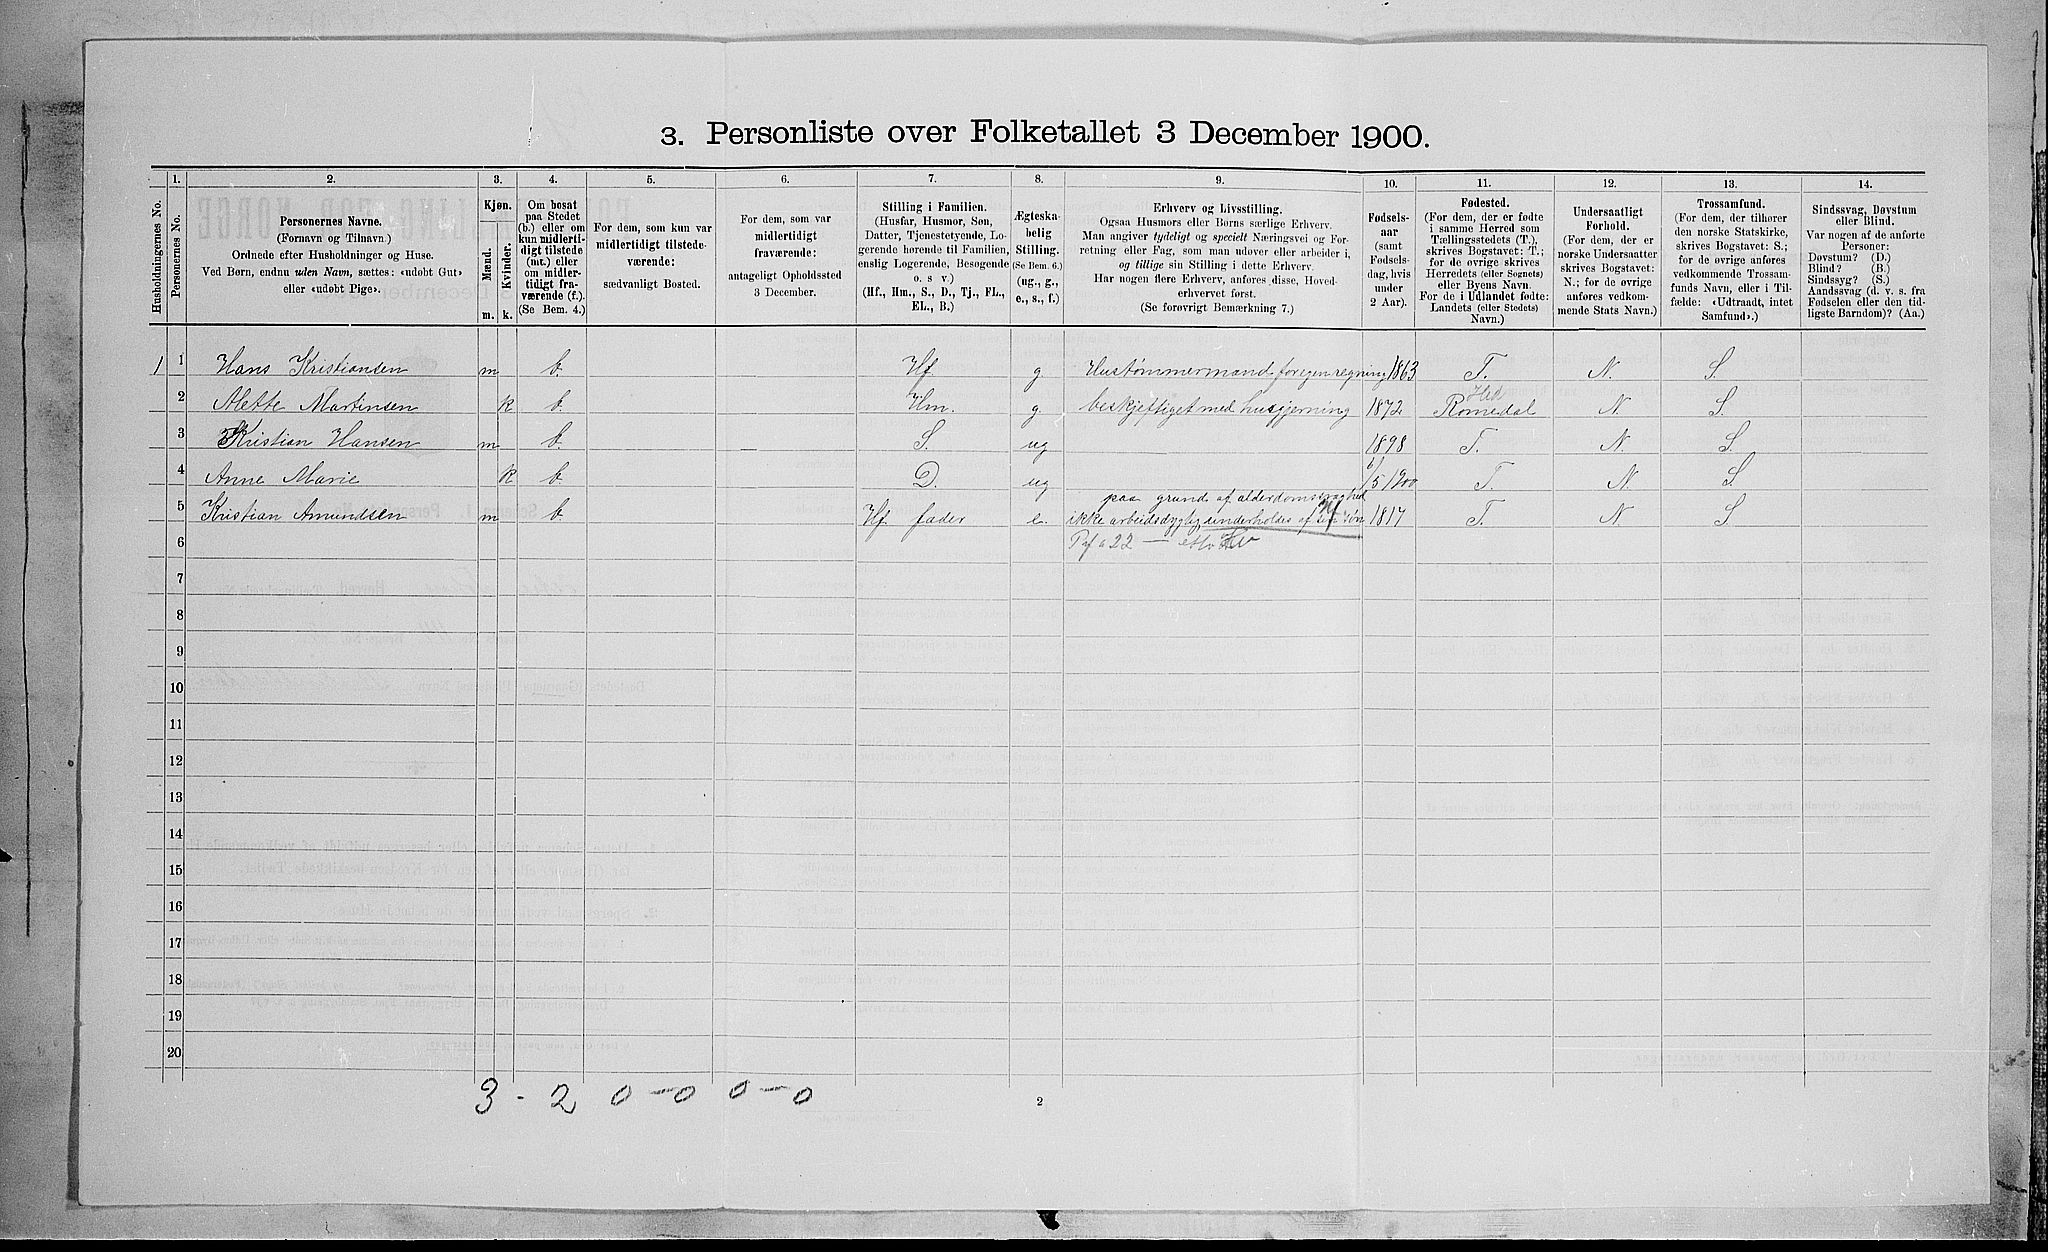 3. Personliste over Folketallet 3 December 1900.
1. 2. 3. 4. 5. 6. 7. 8. 9. 10. 11. 12. 13. 14.
Husholdningernes No.
Personernes No.
Personernes Navne.
(Fornavn og Tilnavn.)
Ordnede efter Husholdninger og Huse.
Ved Børn, endnu uden Navn, sættes: «udøbt Gut»
eller «udøbt Pige».
Kjøn.
Mænd.
Kvinder.
m. k.
Om bosat
paa Stedet
(b.) eller om
kun midlerti-
digt tilstede
(mt.) eller
om midler-
tidigt fra-
værende (f.).
(Se Bem. 4.)
For dem, som kun var
midlertidigt tilstede-
værende:
sædvanligt Bosted.
For dem, som var
midlertidigt
fraværende:
antageligt Opholdssted
3 December.
Stilling i Familien.
(Husfar, Husmor, Søn,
Datter, Tjenestetyende, Lo-
gerende hørende til Familien,
enslig Logerende, Besøgende
o. s v.)
(Hf., Hm., S., D., Tj., FL.,
EL., B.)
Ægteska-
belig
Stilling.
(Se Bem. 6.)
(ug., g.,
e., s., f.)
Erhverv og Livsstilling.
Ogsaa Husmors eller Børns særlige Erhverv.
Man angiver tydeligt og specielt Næringsvei og For-
retning eller Fag, som man udøver eller arbeider i,
og tillige sin Stilling i dette Erhverv.
Har nogen flere Erhverv, anføres disse, Hoved-
erhvervet først.
(Se forøvrigt Bemærkning 7.)
Fødsels-
aar
(samt
Fødsels-
dag, hvis
under
2 Aar).
Fødested.
(For dem, der er fødte
i samme Herred som
Tællingsstedets (T.),
skrives Bogstavet: T.;
for de øvrige skrives
Herredets (eller Sognets)
eller Byens Navn.
For de i Udlandet fødte:
Landets (eller Stedets)
Navn.)
Undersaatligt
Forhold.
(For dem, der er
norske Undersaatter
skrives Bogstavet:
N.; for de øvrige
anføres vedkom-
mende Stats Navn.)
Trossamfund.
(For dem, der tilhører
den norske Statskirke,
skrives Bogstavet: S.;
for de øvrige anføres
vedkommende Trossam-
funds Navn, eller i Til-
fælde: «Udtraadt, intet
Samfund».)
Sindssvag, Døvstum
eller Blind.
Var nogen af de anførte
Personer:
Døvstum? (D.)
Blind? (B.)
Sindssyg? (S.)
Aandssvag (d. v. s. fra
Fødselen eller den tid-
ligste Barndom)? (Aa.)
1 1 Hans Kristiansen m b. Hf g. Hustømmermand for egen regning 1863 T. N. S.
Hed
2 Alette Martinsen k b. Hm. g. beskjeftiget med husgjerning 1872 Romedal N. S.
3 Kristian Hansen m b. S. ug 1898 T. N. S.
4 Anne Marie k b. D ug 6/5 1900 T. N. S.
paa grund af alderdomssvaghed
5 Kristian Amundsen m b. Hf. fader e. ikke arbeidsdygtig underholdes af sin søn 1817 T. N. S
6
7
8
9
10
11
12
13
14
15
16
17
18
19
20
3 - 2 0 – 0 0 – 0
2